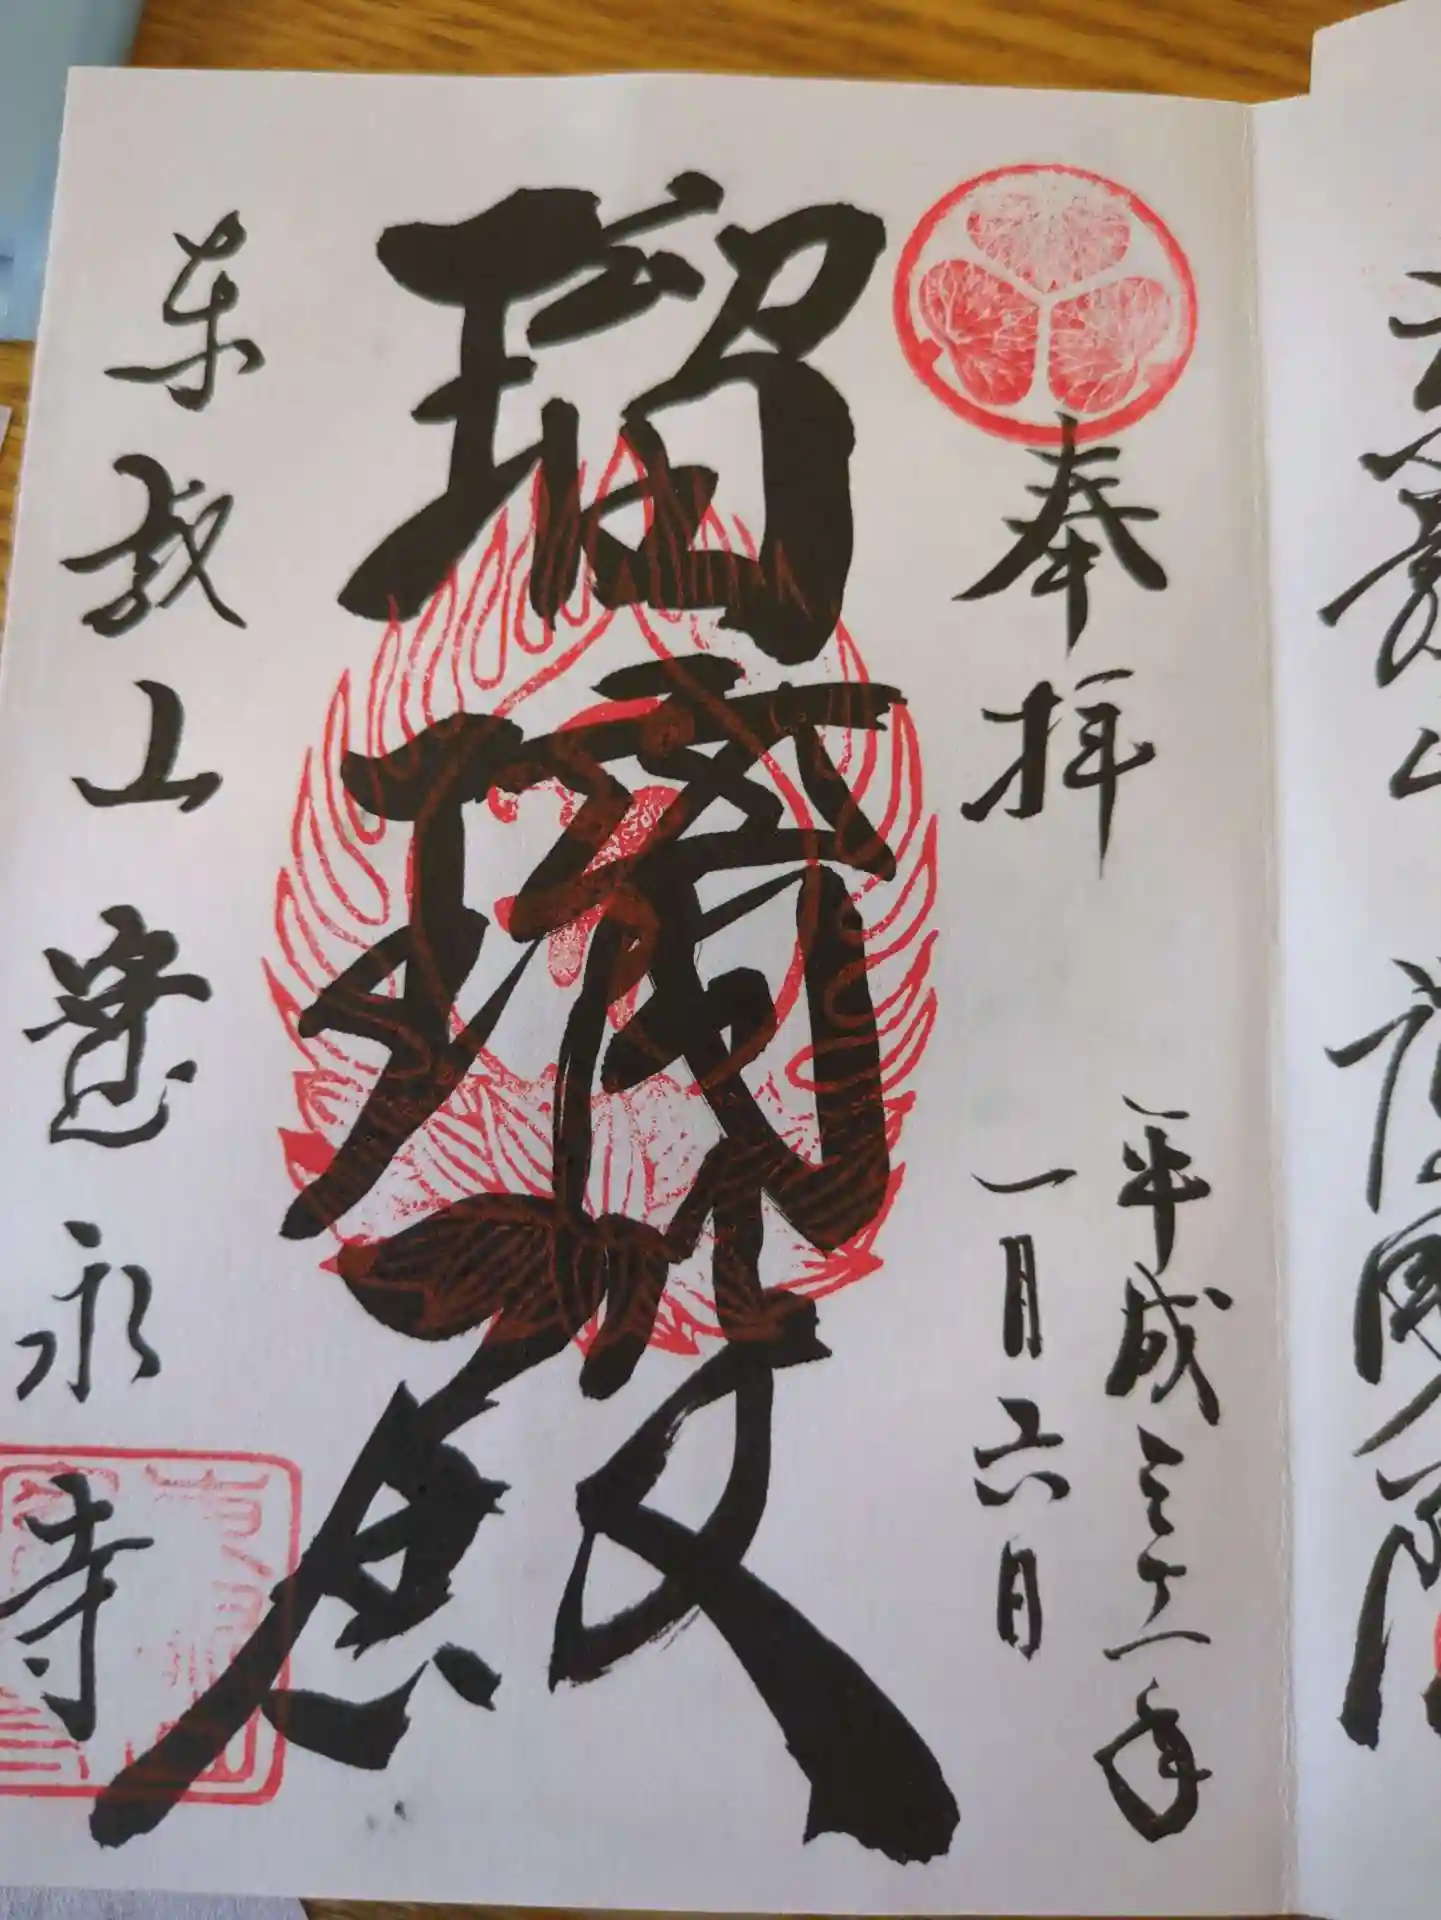 奉拝
平成三十一年
一月六日
瑠璃殿
東叡山寛永寺